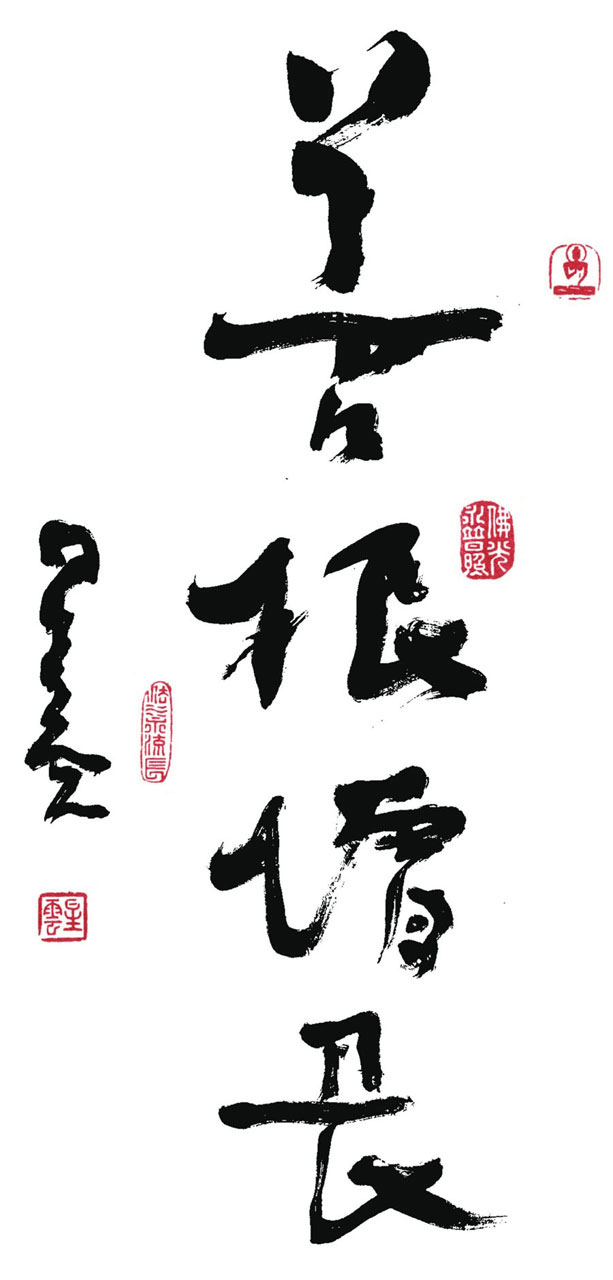 善根增長
佛光永普照
法水流長
星雲
星雲